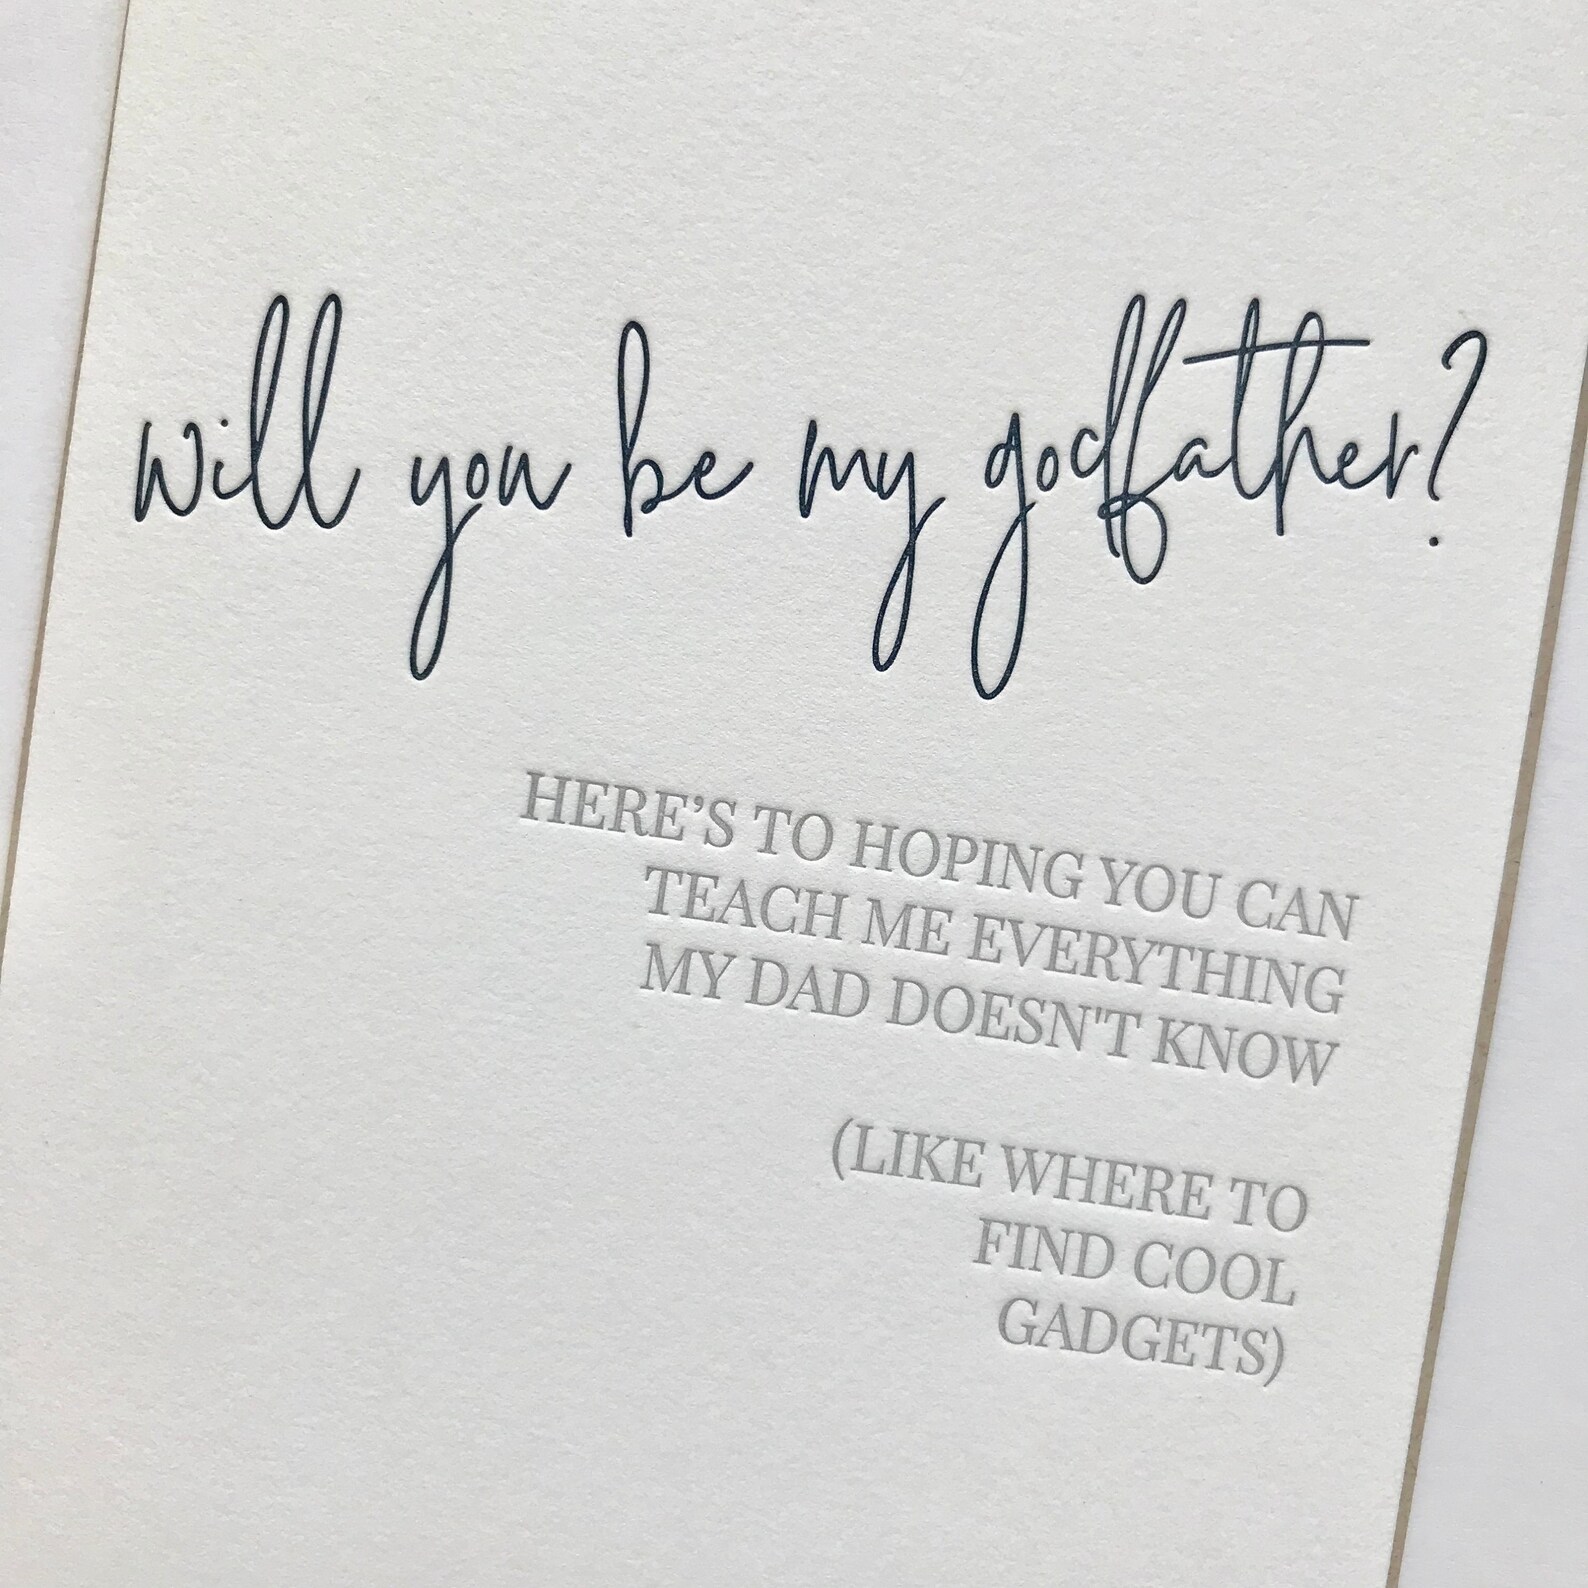 will you be my godfather?
HERE’S TO HOPING YOU CAN
TEACH ME EVERYTHING
MY DAD DOESN'T KNOW
(LIKE WHERE TO
FIND COOL
GADGETS)